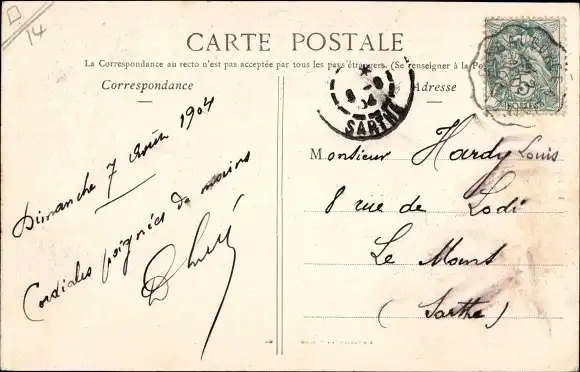 14
CARTE POSTALE
La Correspondance au recto n'est pas acceptée par tous les pays étrangers. (Se renseigner à la Poste)
Correspondance
Adresse
8 - 8
04
SARTHE
5c
POSTES
Dimanche 7 Août 1904
Cordiales poignées de mains
Monsieur Hardy Louis
8 rue de Lodi
Le Mans
(Sarthe)